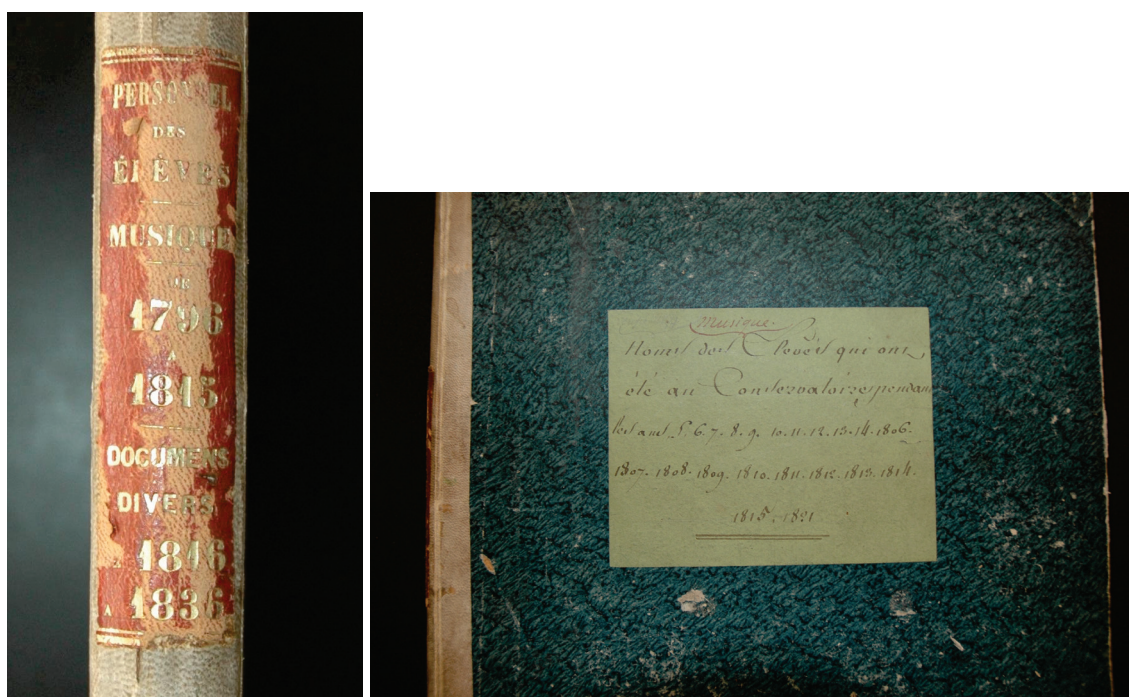 PERSONNEL
DES
ÉLÈVES
MUSIQUE
DE
1796
A
1815
DOCUMENS
DIVERS
1816
A 1836
Musique.
Noms des Elèves qui ont
été au Conservatoire pendant
les ans 5. 6. 7. 8. 9. 10. 11. 12. 13. 14. 1806.
1807. 1808. 1809. 1810. 1811. 1812. 1813. 1814.
1815. 1821